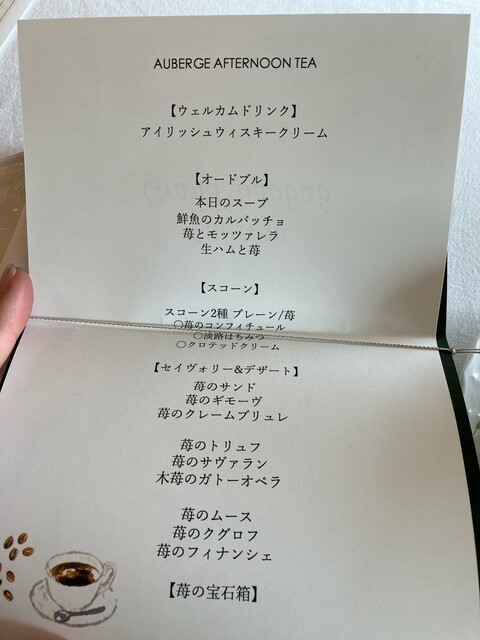 AUBERGE AFTERNOON TEA
【ウェルカムドリンク】
アイリッシュウィスキークリーム
【オードブル】
本日のスープ
鮮魚のカルパッチョ
苺とモッツァレラ
生ハムと苺
【スコーン】
スコーン2種 プレーン/苺
○苺のコンフィチュール
○淡路はちみつ
○クロテッドクリーム
【セイヴォリー&デザート】
苺のサンド
苺のギモーヴ
苺のクレームブリュレ
苺のトリュフ
苺のサヴァラン
木苺のガトーオペラ
苺のムース
苺のクグロフ
苺のフィナンシェ
【苺の宝石箱】